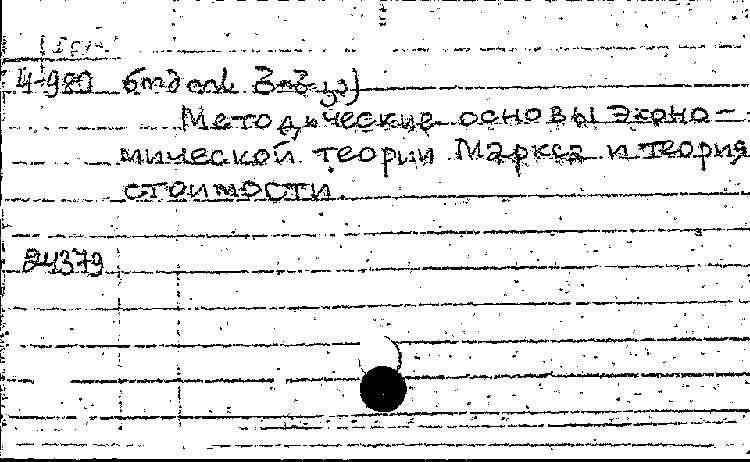 4-980
Методические основы эконо-
мической теории Маркса и теория
стоимости.
24379